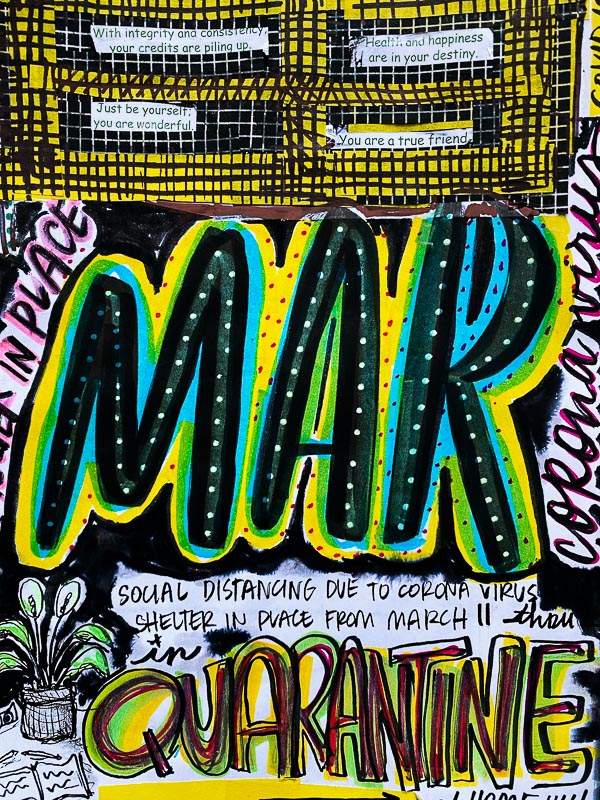 With integrity and consistency,
your credits are piling up.
Health and happiness
are in your destiny.
Just be yourself;
you are wonderful.
You are a true friend.
IN PLACE
corona virus
MAR
SOCIAL DISTANCING DUE TO CORONA VIRUS
SHELTER IN PLACE FROM MARCH 11 thru
in
QUARANTINE